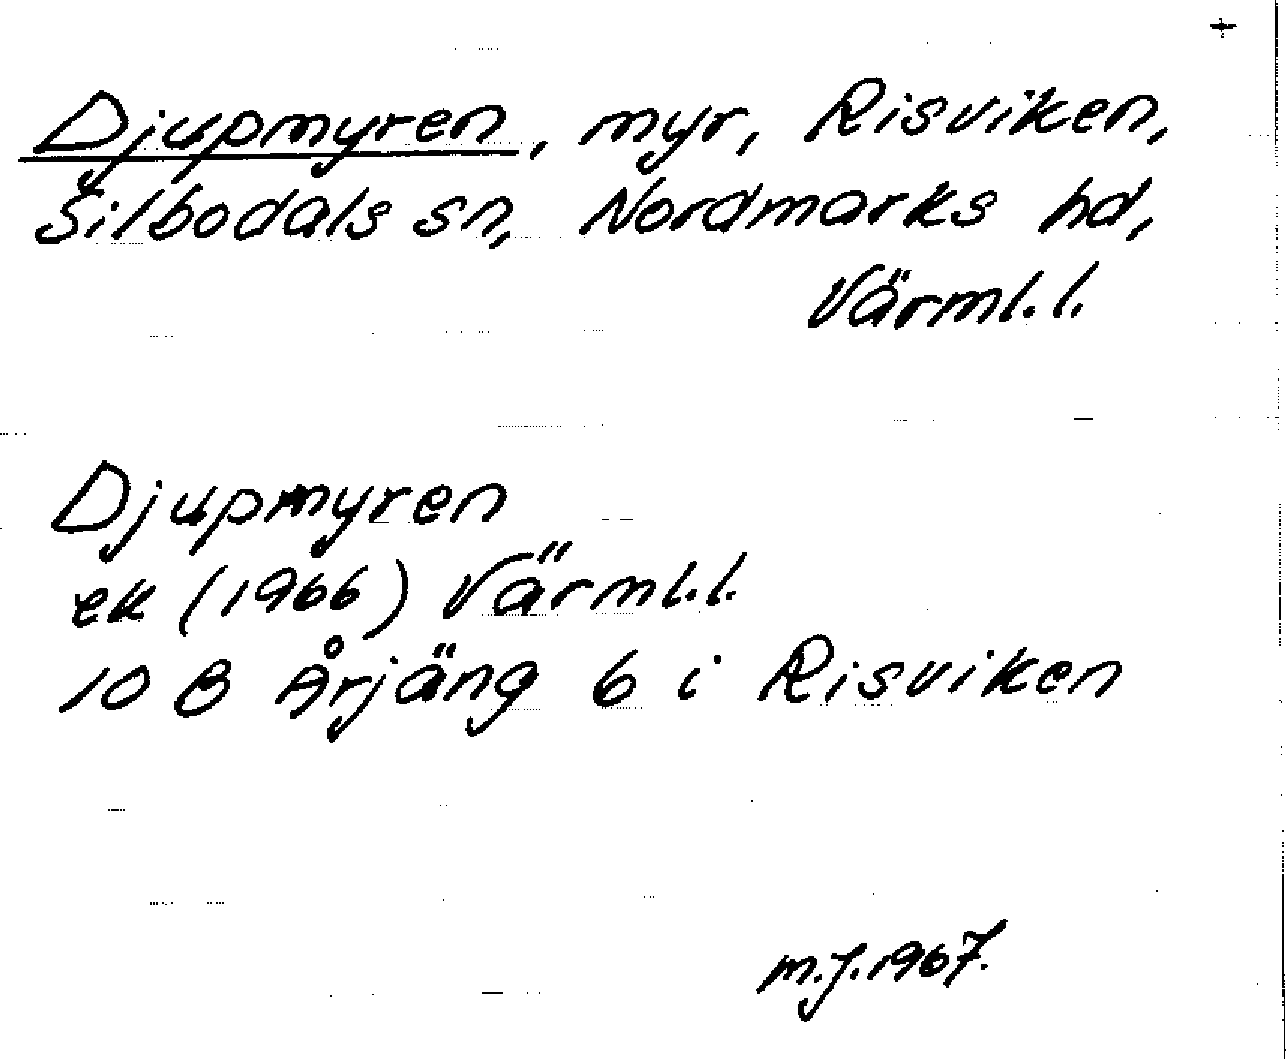 +
Djupmyren, myr, Risviken,
Silbodals sn, Nordmarks hd,
Värml.l.
Djupmyren
ek (1966) Värml.l.
10 B Årjäng 6 i Risviken
m.J.1967.